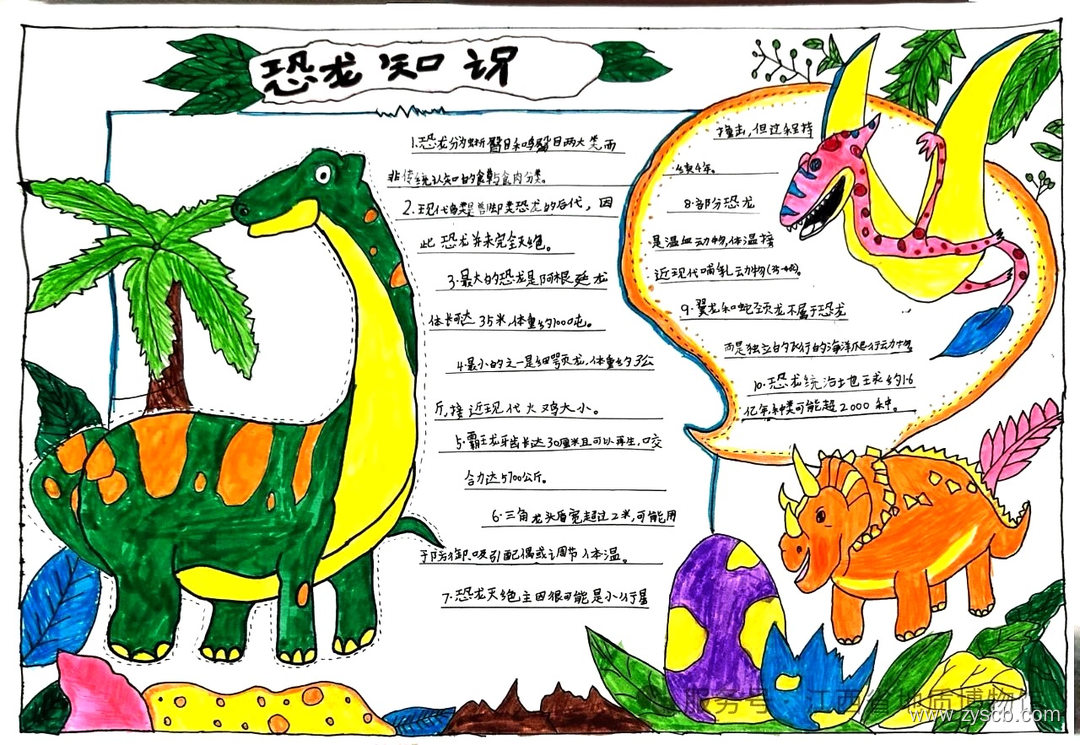 恐龙知识
1.恐龙分为蜥臀目和鸟臀目两大类而
非传统认知的食草与食肉分类。
2.现代鸟类是兽脚类恐龙的后代，因
此恐龙并未完全灭绝。
3.最大的恐龙是阿根廷龙
体长可达35米,体重约1000吨。
4.最小的之一是细颚龙,体重约3公
斤,接近现代火鸡大小。
5.霸王龙牙齿长达30厘米且可以再生,咬
合力达5700公斤。
6.三角龙头盾宽超过2米,可能用
于防御.吸引配偶或调节体温。
7.恐龙灭绝主因很可能是小行星
撞击,但过程持
续4年。
8.部分恐龙
是温血动物,体温接
近现代哺乳动物
9.翼龙和蛇颈龙不属于恐龙
而是独立的飞行的海洋爬行动物
10.恐龙统治地球约1.6
亿年,种类可能超2000种。
服务号·江西省地质博物馆
www.zyscb.com